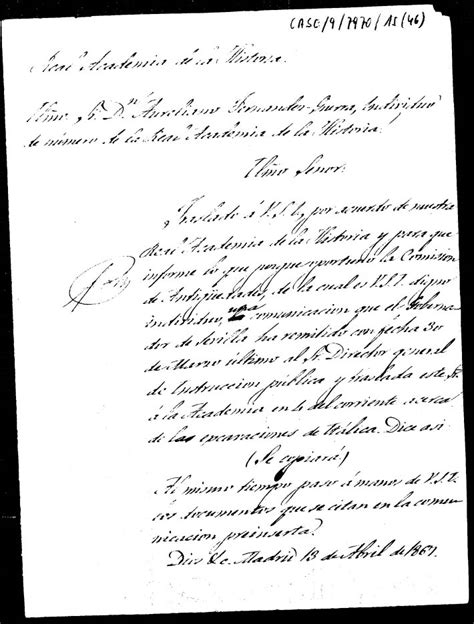 CASE/9/7970/15(46)
Real Academia de la Historia.
Illmo. Sr. Dn. Aureliano Fernandez-Guerra, Individuo
de número de la Real Academia de la Historia.
Illmo Señor:
Traslado á V.S.I., por acuerdo de nuestra
Real Academia de la Historia y para que
informe lo que juzgue oportuno la Comision
de Antigüedades, de la cual es V.S.I. digno
individuo, una comunicacion que el Goberna-
dor de Sevilla ha remitido con fecha 30
de Marzo último al Sr. Director general
de Instruccion pública y traslada este Sr.
á la Academia en 4 del corriente acerca
de las excavaciones de Itálica. Dice asi:
(Se copiará)
Al mismo tiempo paso á manos de V.S.I.
los documentos que se citan en la comu-
nicacion preinserta.
Dios &c. Madrid 13 de Abril de 1861.